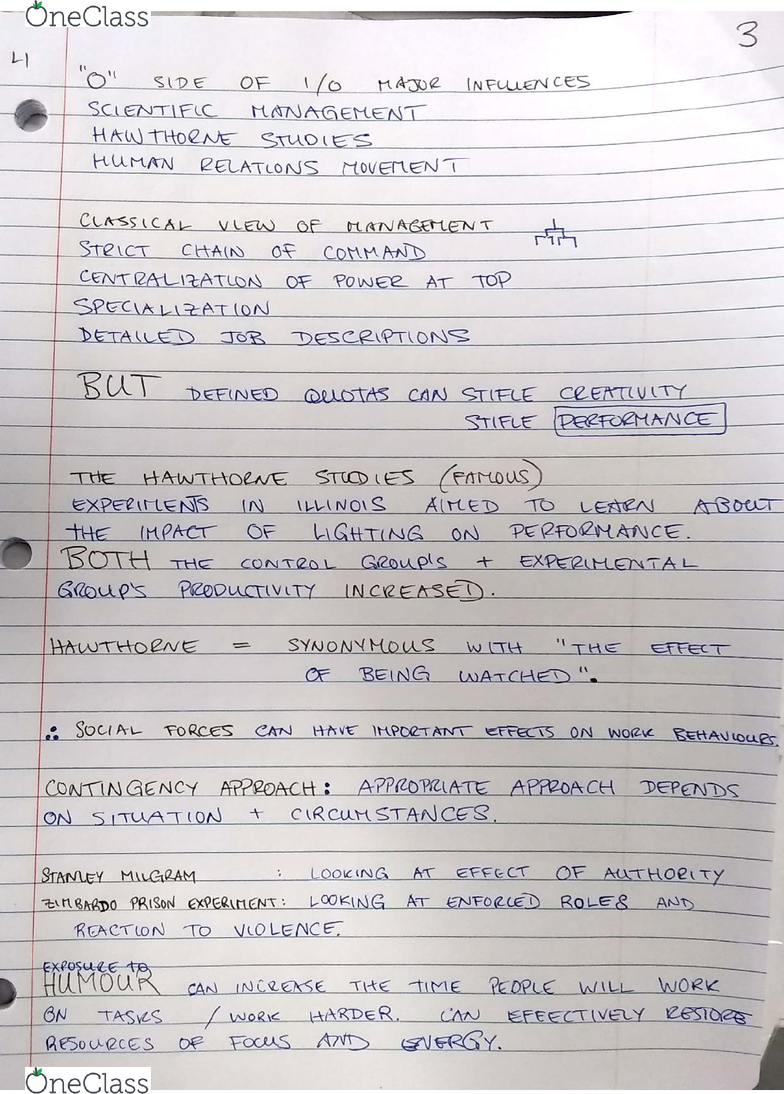 OneClass
3
L1
"O" SIDE OF I/O MAJOR INFLUENCES
SCIENTIFIC MANAGEMENT
HAWTHORNE STUDIES
HUMAN RELATIONS MOVEMENT
CLASSICAL VIEW OF MANAGEMENT
STRICT CHAIN OF COMMAND
CENTRALIZATION OF POWER AT TOP
SPECIALIZATION
DETAILED JOB DESCRIPTIONS
BUT DEFINED QUOTAS CAN STIFLE CREATIVITY
STIFLE PERFORMANCE
THE HAWTHORNE STUDIES (FAMOUS)
EXPERIMENTS IN ILLINOIS AIMED TO LEARN ABOUT
THE IMPACT OF LIGHTING ON PERFORMANCE.
BOTH THE CONTROL GROUP'S + EXPERIMENTAL
GROUP'S PRODUCTIVITY INCREASED.
HAWTHORNE = SYNONYMOUS WITH "THE EFFECT
OF BEING WATCHED".
∴ SOCIAL FORCES CAN HAVE IMPORTANT EFFECTS ON WORK BEHAVIOURS.
CONTINGENCY APPROACH: APPROPRIATE APPROACH DEPENDS
ON SITUATION + CIRCUMSTANCES.
STANLEY MILGRAM : LOOKING AT EFFECT OF AUTHORITY
ZIMBARDO PRISON EXPERIMENT: LOOKING AT ENFORCED ROLES AND
REACTION TO VIOLENCE.
EXPOSURE TO
HUMOUR CAN INCREASE THE TIME PEOPLE WILL WORK
ON TASKS / WORK HARDER. CAN EFFECTIVELY RESTORE
RESOURCES OF FOCUS AND ENERGY.
OneClass